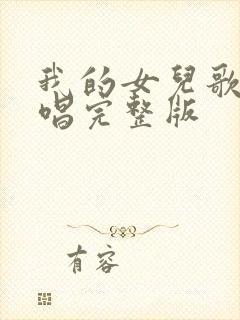 我的女兒歌
唱完整版
有容